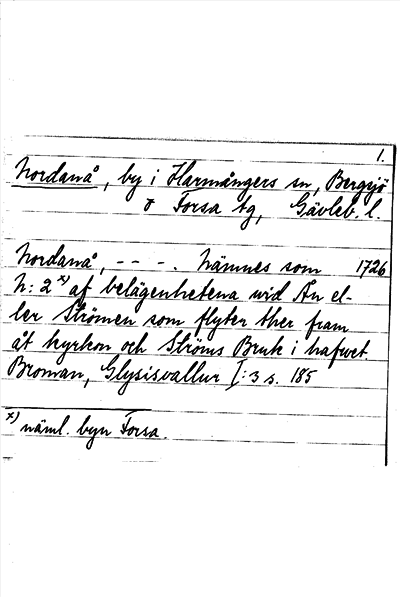 1.
Nordanå, by i Harmångers sn, Bergsjö
o Forsa tg, Gävleb. l.
Nordanå, - - - . Nämnes som 1726
N: 2 x) af belägenhetena wid Ån el-
ler Strömen som flyter ther fram
åt kyrkon och Ströms Bruk i hafwet
Broman, Glysisvallur I:3 s. 185
x) näml. byn Forsa.